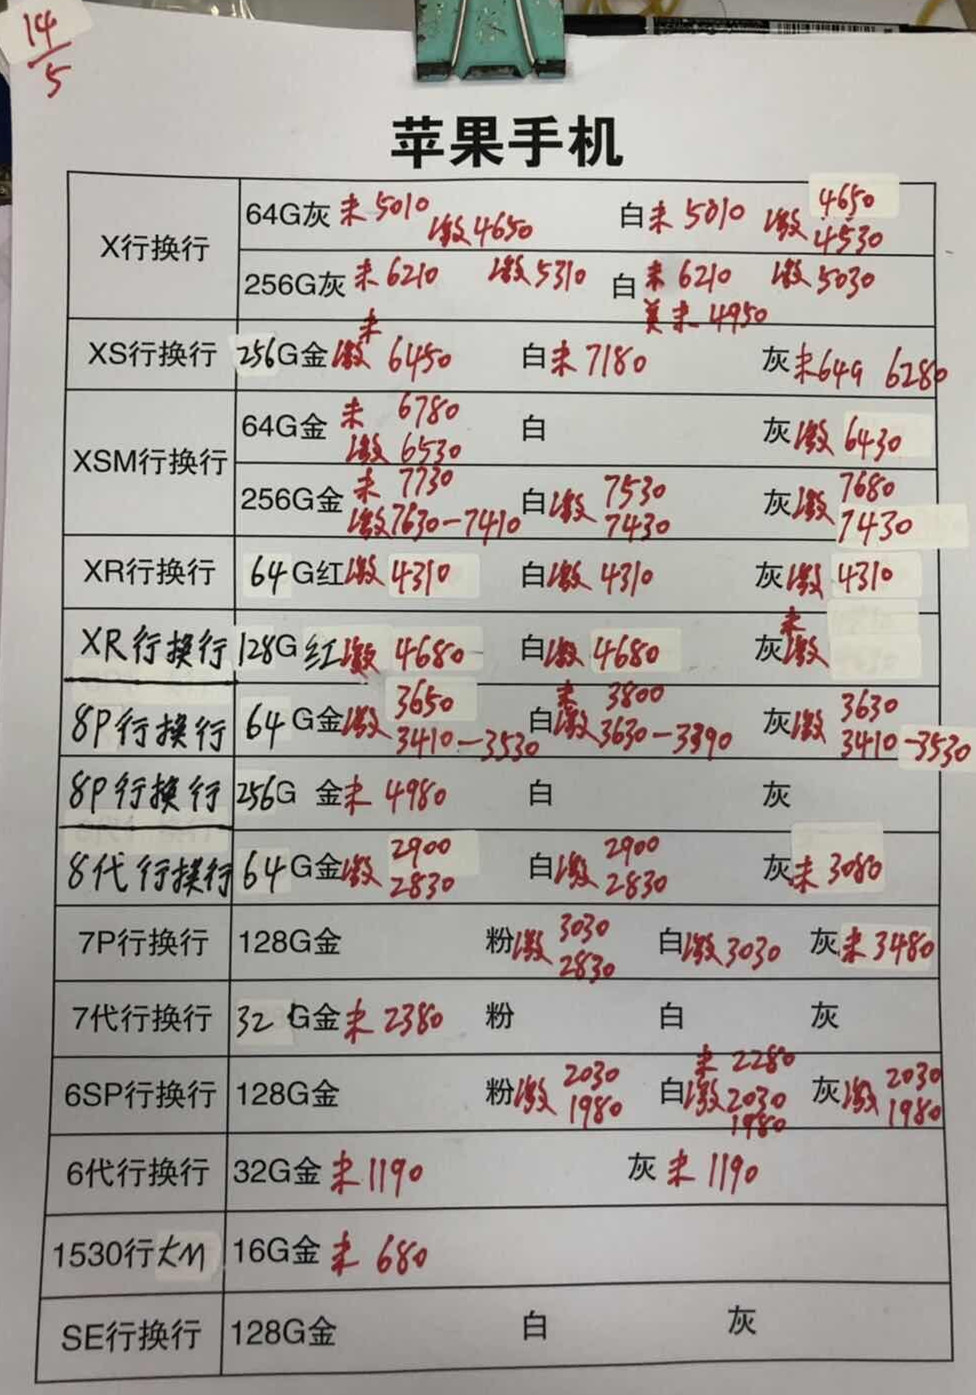 14/5
苹果手机
X行换行 64G灰 未 5010 激 4650 白 未 5010 激 4650 4530
256G灰 未 6210 激 5310 白 未 6210 激 5030 美 未 4950
XS行换行 256G金 未 激 6450 白 未 7180 灰 未 649 6280
XSM行换行 64G金 未 6780 激 6530 白 灰 激 6430
256G金 未 7730 激 7630-7410 白 激 7530 7430 灰 激 7680 7430
XR行换行 64G红 激 4310 白 激 4310 灰 激 4310
XR行换行 128G红 激 4680 白 激 4680 灰 未 激
8P行换行 64G金 激 3650 3410-3530 白 未 3800 激 3630-3390 灰 激 3630 3410-3530
8P行换行 256G 金 未 4980 白 灰
8代行换行 64G金 激 2900 2830 白 激 2900 2830 灰 未 3080
7P行换行 128G金 粉 激 3030 2830 白 激 3030 灰 未 3480
7代行换行 32G金 未 2380 粉 白 灰
6SP行换行 128G金 粉 激 2030 1980 白 未 2280 激 2030 1980 灰 激 2030 1980
6代行换行 32G金 未 1190 灰 未 1190
1530行大M 16G金 未 680
SE行换行 128G金 白 灰